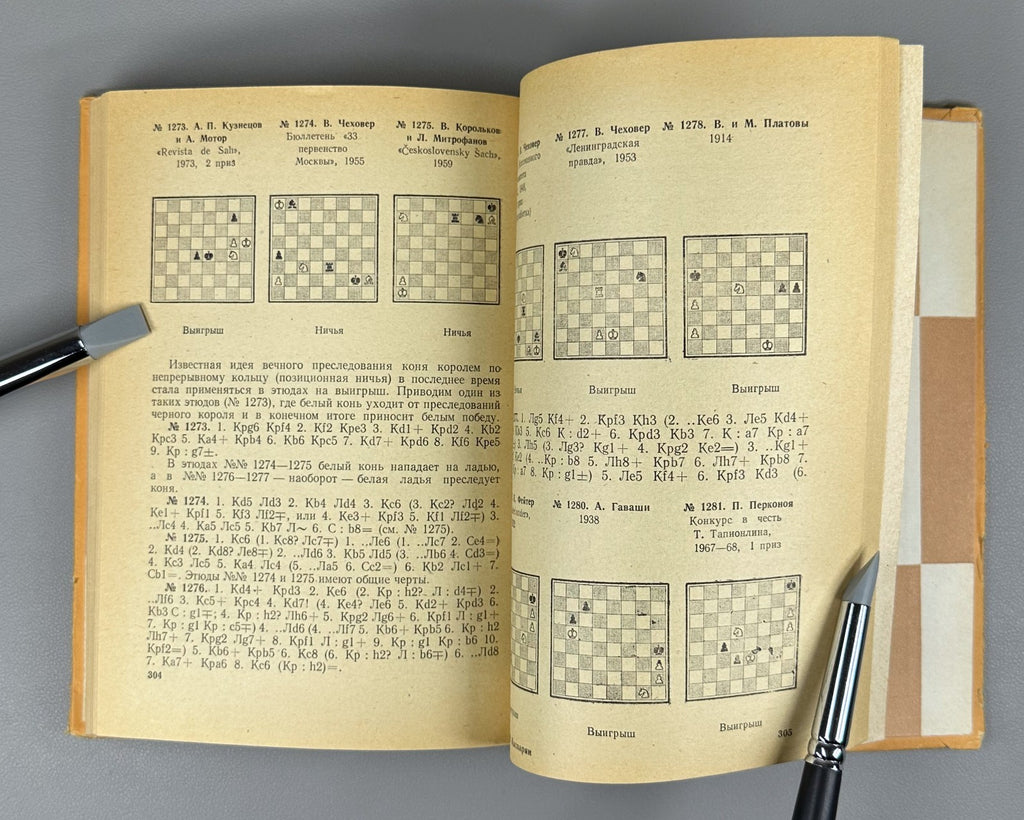 № 1273. А. П. Кузнецов
и А. Мотор
«Revista de Sah»,
1973, 2 приз
№ 1274. В. Чеховер
Бюллетень «33
первенство
Москвы», 1955
№ 1275. В. Корольков
и Л. Митрофанов
«Československy Šach»,
1959
Выигрыш
Ничья
Ничья
Известная идея вечного преследования коня королем по
непрерывному кольцу (позиционная ничья) в последнее время
стала применяться в этюдах на выигрыш. Приводим один из
таких этюдов (№ 1273), где белый конь уходит от преследований
черного короля и в конечном итоге приносит белым победу.
№ 1273. 1. Kpg6 Kpf4 2. Kf2 Kpe3 3. Kd1+ Kpd2 4. Kb2
Kpc3 5. Ka4+ Kpb4 6. Kb6 Kpc5 7. Kd7+ Kpd6 8. Kf6 Kpe5
9. Kp : g7±.
В этюдах №№ 1274—1275 белый конь нападает на ладью,
а в №№ 1276—1277 — наоборот — белая ладья преследует
коня.
№ 1274. 1. Kd5 Лd3 2. Kb4 Лd4 3. Kc6 (3. Kc2? Лd2 4.
Ke1+ Kpf1 5. Kf3 Лf2∓, или 4. Ke3+ Kpf3 5. Kf1 Лf2∓) 3.
..Лc4 4. Ka5 Лc5 5. Kb7 Л~ 6. C : b8= (см. № 1275).
№ 1275. 1. Kc6 (1. Kc8? Лc7∓) 1. ..Лe6 (1. ..Лc7 2. Ce4=)
2. Kd4 (2. Kd8? Лe8∓) 2. ..Лd6 3. Kb5 Лd5 (3. ..Лb6 4. Cd3=)
4. Kc3 Лc5 5. Ka4 Лc4 (5. ..Лa5 6. Cc2=) 6. Kb2 Лc1+ 7.
Cb1=. Этюды №№ 1274 и 1275 имеют общие черты.
№ 1276. 1. Kd4+ Kpd3 2. Ke6 (2. Kp : h2? Л : d4∓) 2.
..Лf6 3. Kc5+ Kpc4 4. Kd7! (4. Ke4? Лe6 5. Kd2+ Kpd3 6.
Kb3 C : g1∓; 4. Kp : h2? Лh6+ 5. Kpg2 Лg6+ 6. Kpf1 Л : g1+
7. Kp : g1 Kp : c5∓) 4. ..Лd6 (4. ..Лf7 5. Kb6+ Kpb5 6. Kp : h2
Лh7+ 7. Kpg2 Лg7+ 8. Kpf1 Л : g1+ 9. Kp : g1 Kp : b6 10.
Kpf2=) 5. Kb6+ Kpb5 6. Kc8 (6. Kp : h2? Л : b6∓) 6. ..Лd8
7. Ka7+ Kpa6 8. Kc6 (Kp : h2)=.
304
Чеховер
№ 1277. В. Чеховер
«Ленинградская
правда», 1953
№ 1278. В. и М. Платовы
1914
Выигрыш
Выигрыш
1. Лg5 Kf4+ 2. Kpf3 Kh3 (2. ..Ke6 3. Лe5 Kd4+
5. Kc6 K : d2+ 6. Kpd3 Kb3 7. K : a7 Kp : a7
3. Лh5 (3. Лg3? Kg1+ 4. Kpg2 Ke2=) 3. ..Kg1+
(4. ..Kp : b8 5. Лh8+ Kpb7 6. Лh7+ Kpb8 7.
: a7 8. Kp : g1±) 5. Лe5 Kf4+ 6. Kpf3 Kd3 (6.
№ 1280. А. Гаваши
1938
№ 1281. П. Перконоя
Конкурс в честь
Т. Тапионлина,
1967—68, 1 приз
Выигрыш
Выигрыш
305